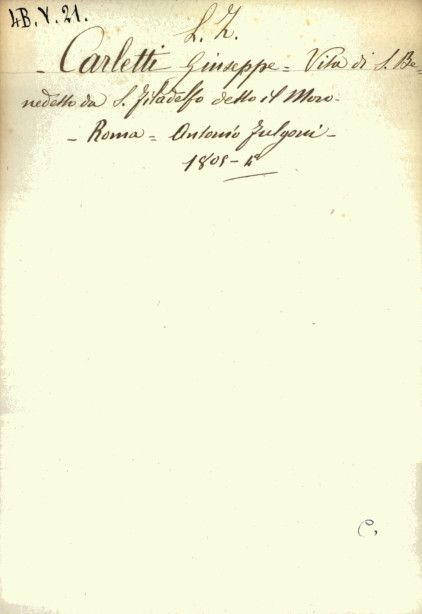 4B.V.21.
L. Z.
- Carletti Giuseppe = Vita di S. Be=
nedetto da S. Filadelfo detto il Moro -
- Roma = Antonio Fulgoni -
1805 - 4º
C,